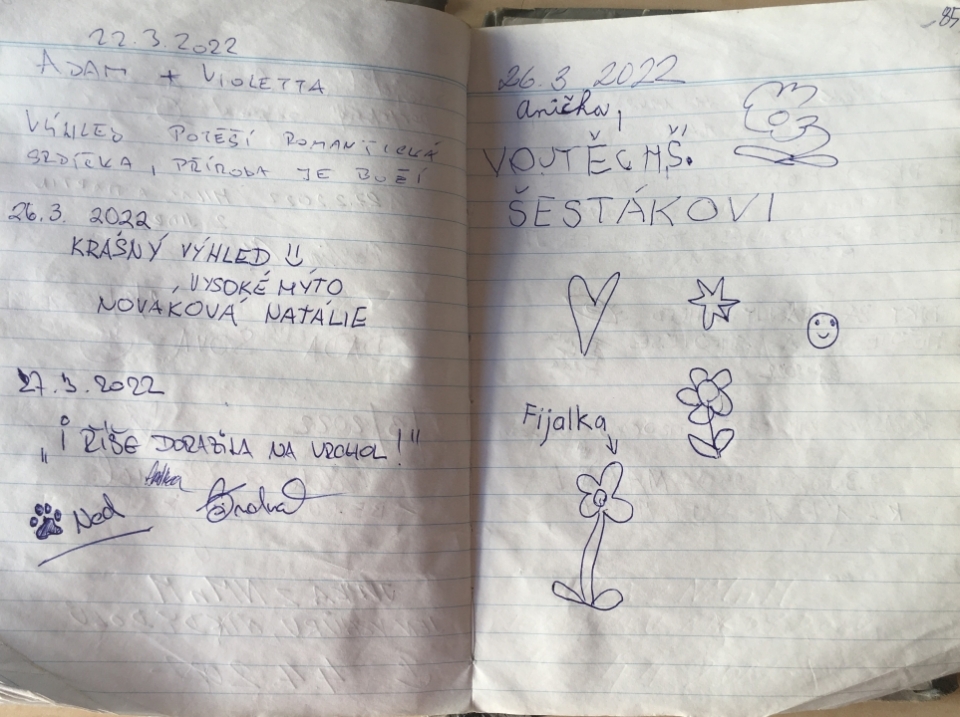 22.3.2022
ADAM + VIOLETTA
VÝHLED POTĚŠÍ ROMANTICKÁ
SRDÍČKA, PŘÍRODA JE BOŽÍ
26.3. 2022
KRÁSNÝ VÝHLED
VYSOKÉ MÝTO
NOVÁKOVÁ NATÁLIE
27.3.2022
„i ŘÍŠE DORAZILA NA VRCHOL!"
Ned
85
26.3 2022
anička,
VOJTĚCH Š.
ŠESTÁKOVI
Fijalka